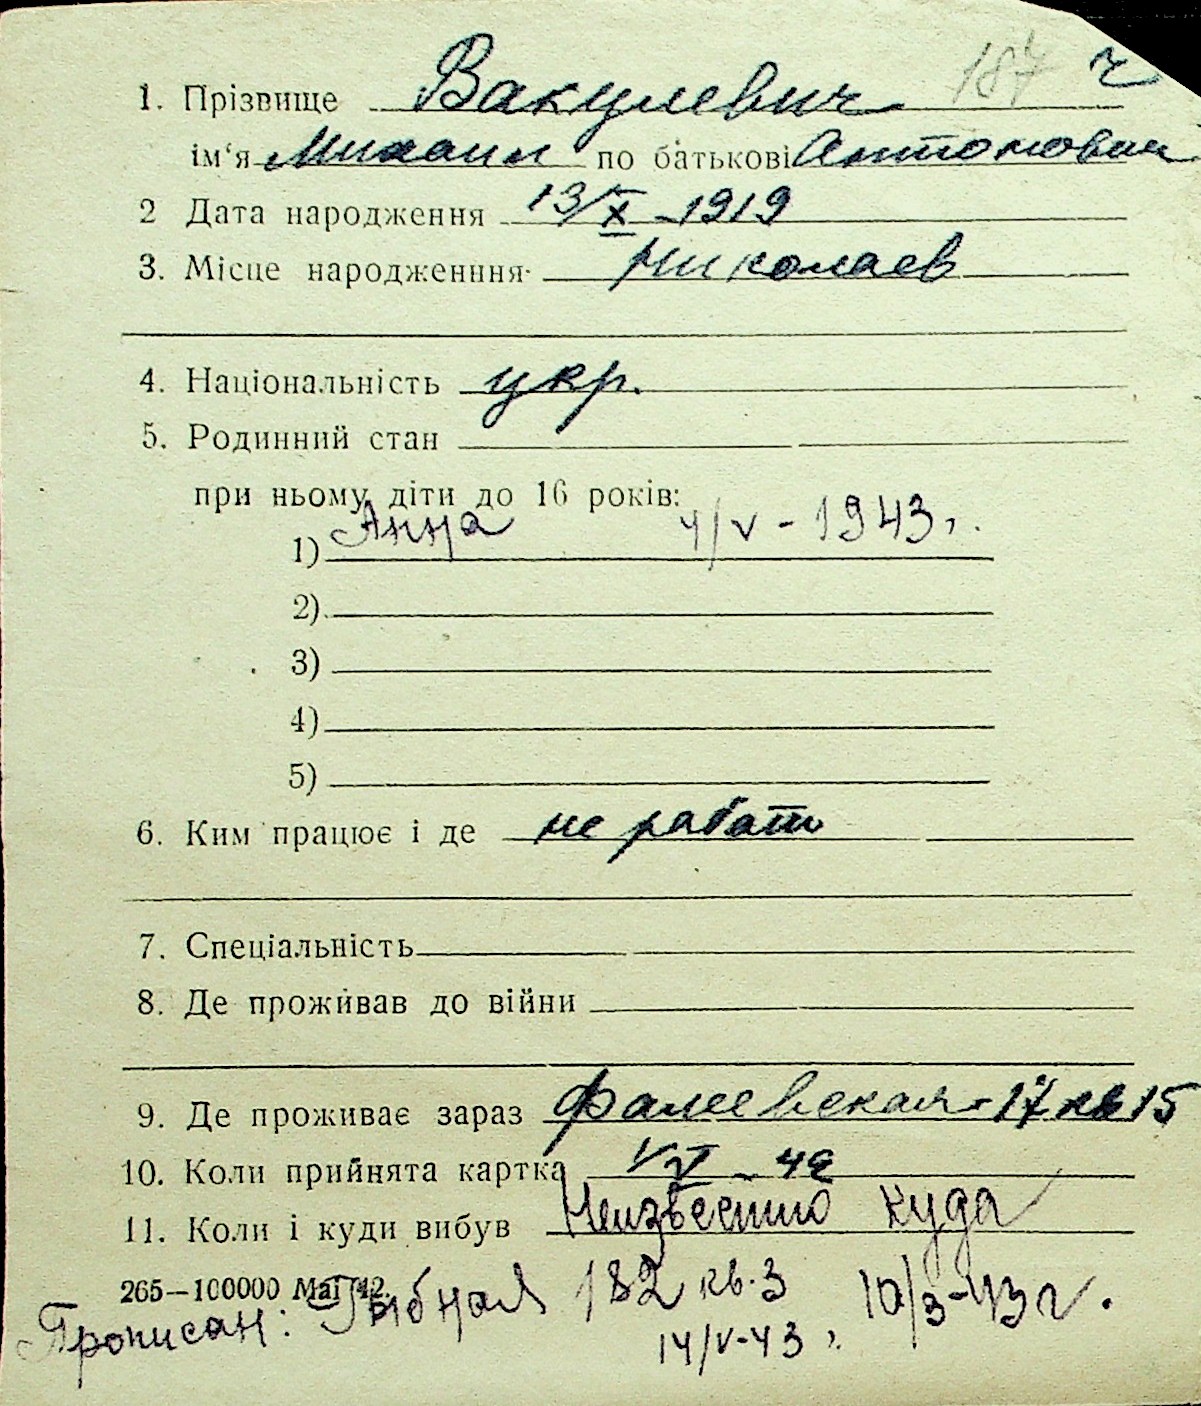 187 ч
1. Прізвище Вакулевич
ім‘я Михаил по батькові Антонович
2 Дата народження 13/X - 1919
3. Місце народженння Николаев
4. Національність укр.
5. Родинний стан
при ньому діти до 16 років:
1) Анна 4/V - 1943 г.
2)
3)
4)
5)
6. Ким працює і де не работ
7. Спеціальність
8. Де проживав до війни
9. Де проживає зараз Фалеевская - 17 кв 15
10. Коли прийнята картка 42
11. Коли і куди вибув Неизвестно куда
265—100000 Маг 42.
Прописан: Рыбная 182 кв. 3 10/3-43 г.
14/V-43 г.